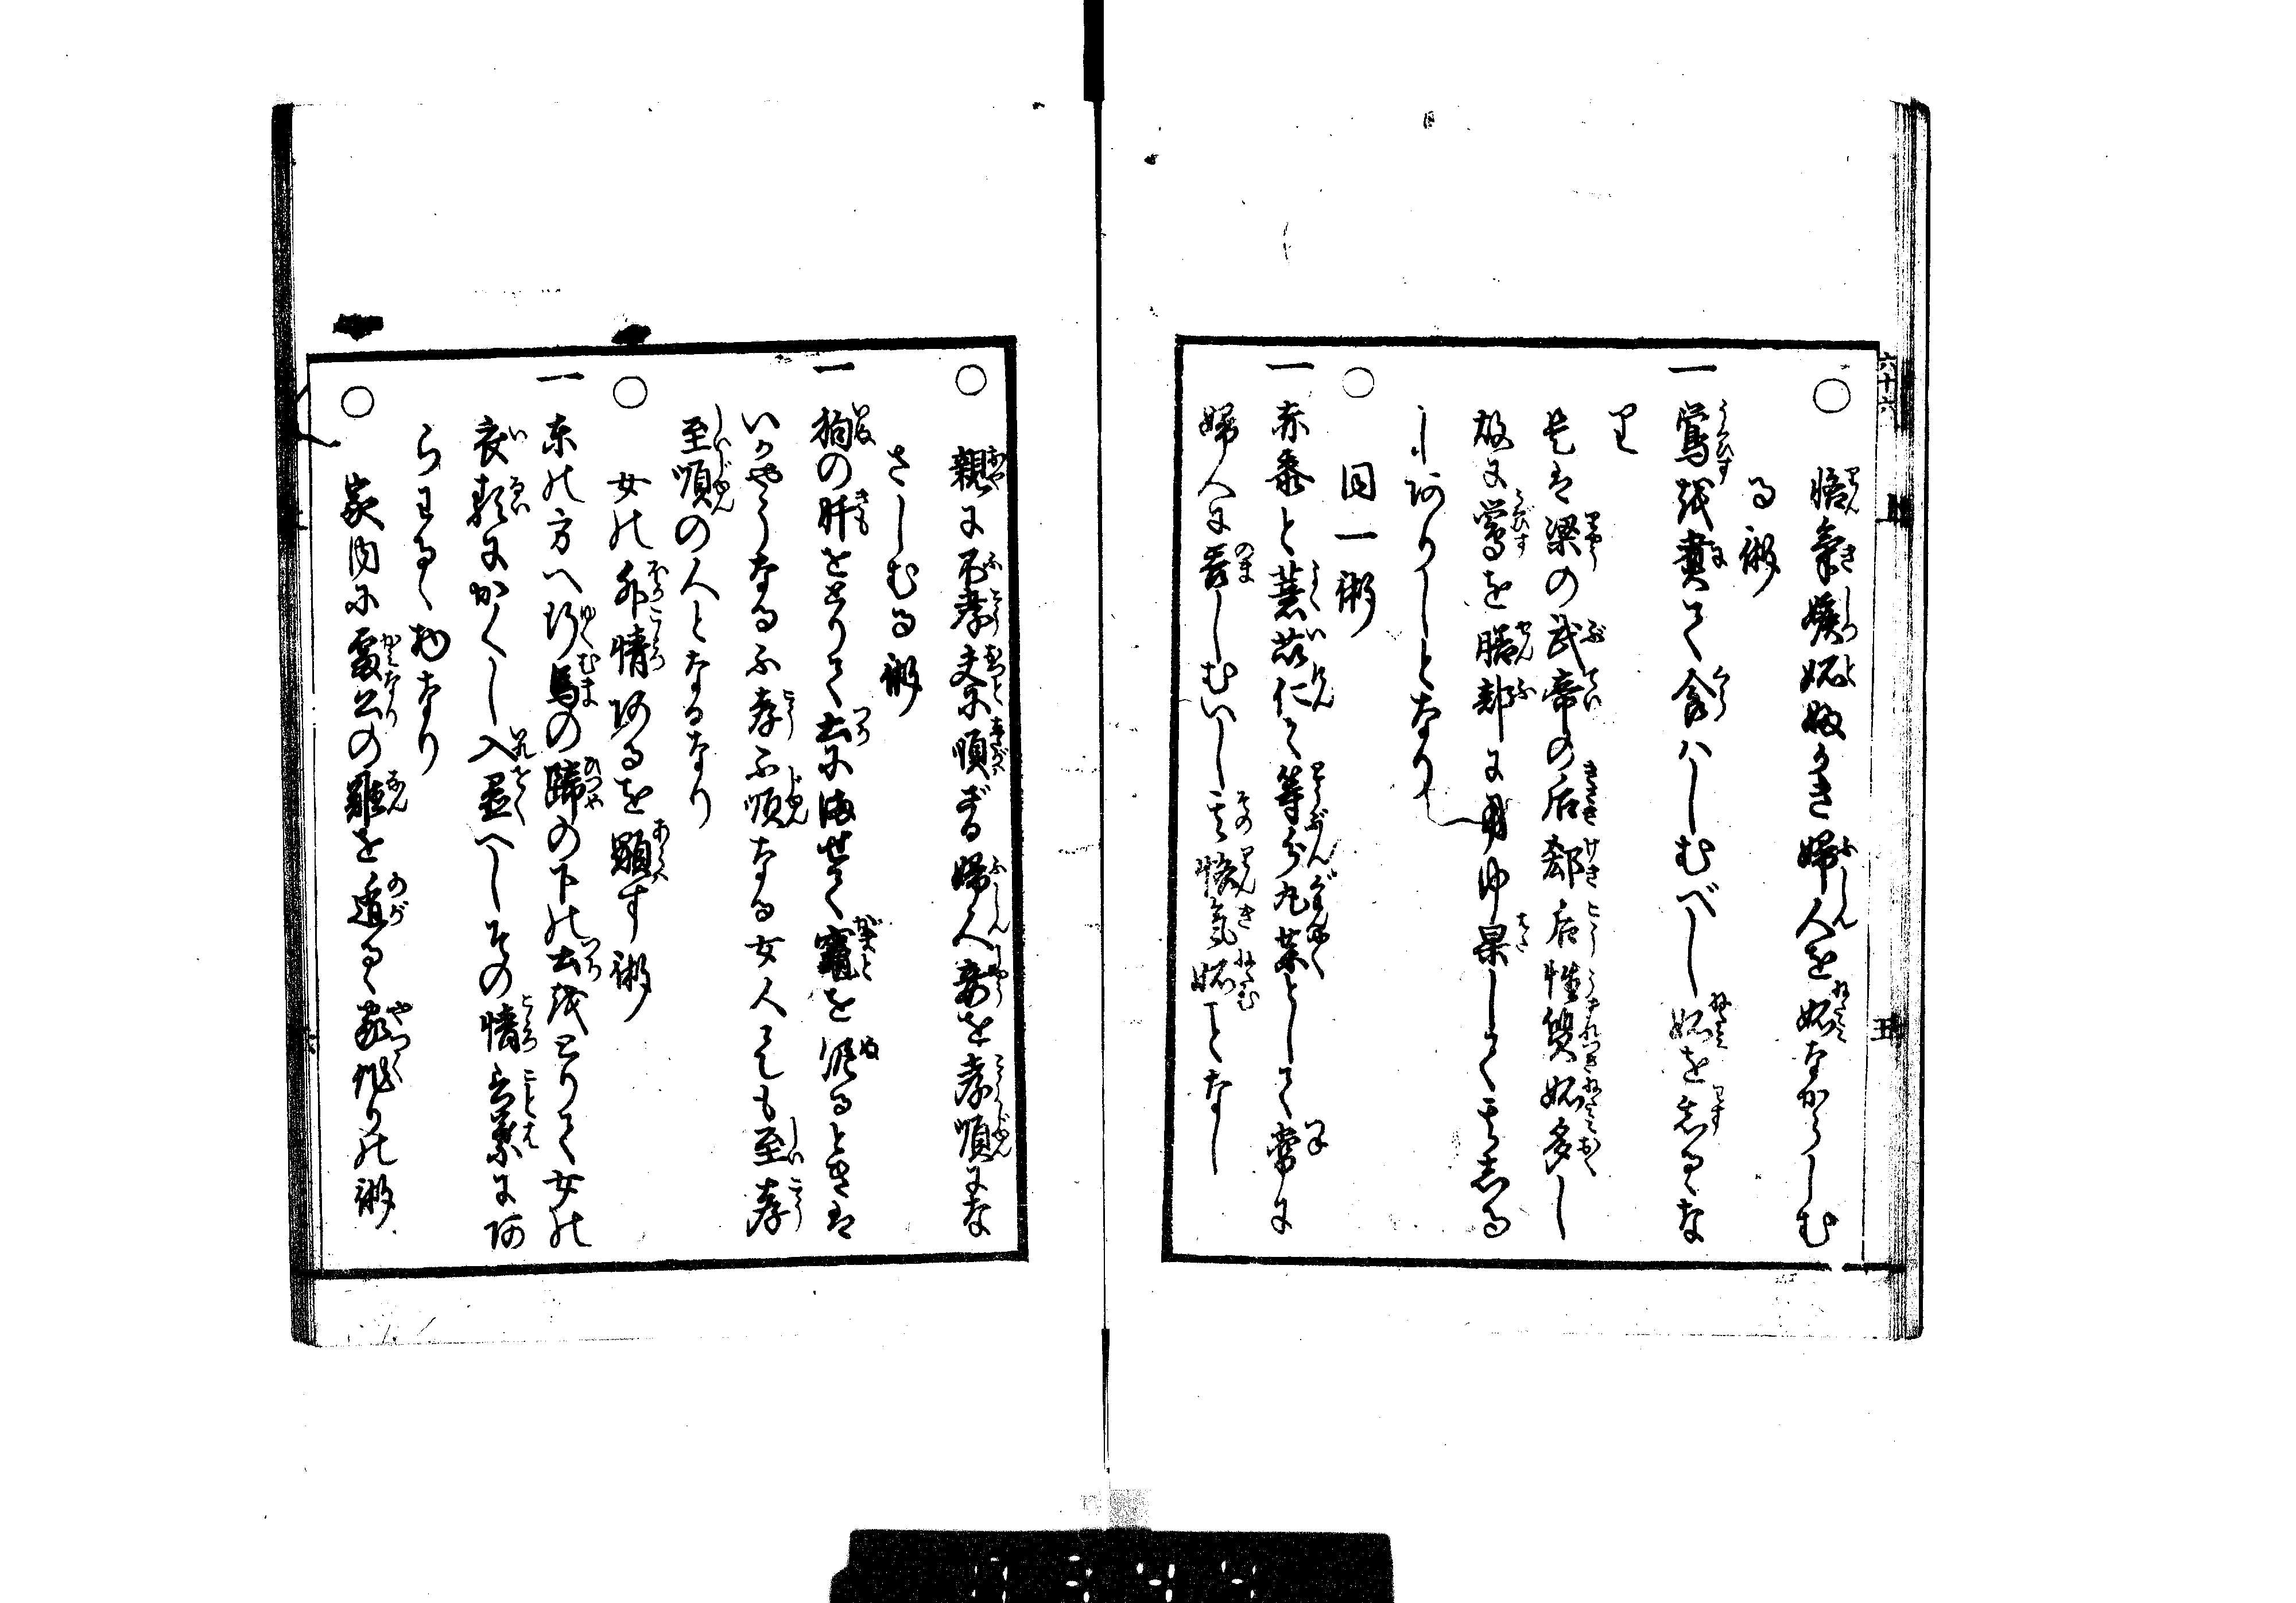 六十六 上 五
○ 悋氣嫉妬ふかき婦人を妬なからしむ
る術
一 鶯を煮て食ハしむべし妬を忘るゝな
り
是は梁の武帝の后郄后性質妬多し
故に鶯を膳部に用ゆ果して其志る
しありしとなり
○ 同一術
一 赤黍と薏苡仁と等分丸薬として常に
婦人に呑しむべし其悋気妬ことなし
○ 親に不孝夫に順ざる婦人妾を孝順にな
さしむる術
一 狗の肝をとりて土にませて竈を泥るときは
いかやうなる不孝不順なる女人にても至孝
至順の人となるなり
○ 女の外情あるを顕す術
一 東の方へ行馬の蹄の下の土をとりて女の
衣類にかくし入置べしその情言葉にあ
らわるゝ物なり
○ 家内に雷公の難を遁るゝ家作りの術